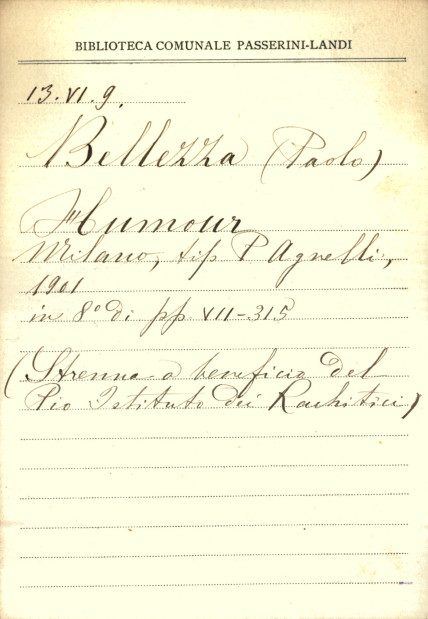 BIBLIOTECA COMUNALE PASSERINI-LANDI
13.VI.9.
Bellezza (Paolo)
Humour
Milano, tip P Agnelli,
1901
in 8° di pp VII-315
(Strenna a beneficio del
Pio Istituto dei Rachitici)